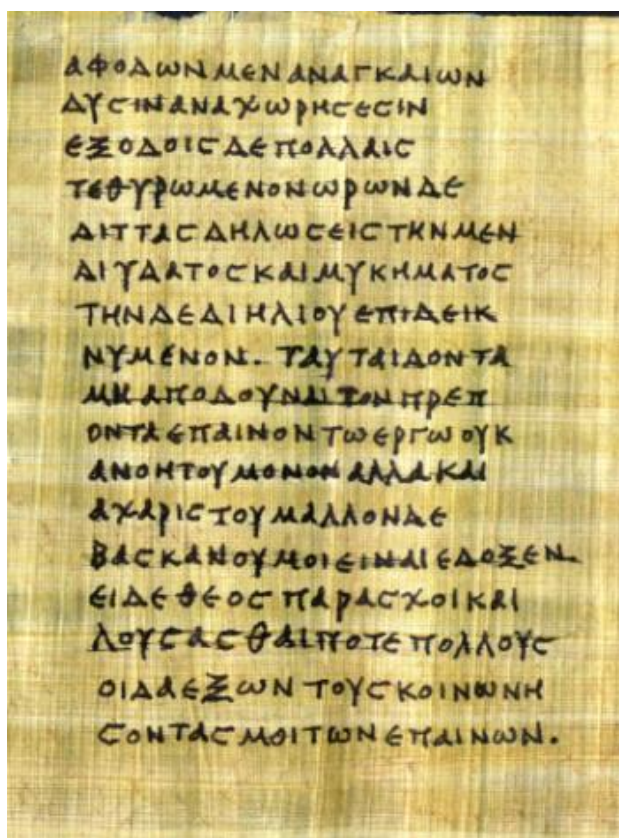 ΑΦΟΔΩΝΜΕΝΑΝΑΓΚΑΙΩΝ
ΔΥϹΙΝΑΝΑΧΩΡΗϹΕϹΙΝ
ΕΞΟΔΟΙϹΔΕΠΟΛΛΑΙϹ
ΤΕΘΥΡΩΜΕΝΟΝΩΡΩΝΔΕ
ΔΙΤΤΑϹΔΗΛΩϹΕΙϹΤΗΝΜΕΝ
ΔΙΥΔΑΤΟϹΚΑΙΜΥΚΗΜΑΤΟϹ
ΤΗΝΔΕΔΙΗΛΙΟΥΕΠΙΔΕΙΚ
ΝΥΜΕΝΟΝ. ΤΑΥΤΑΙΔΟΝΤΑ
ΜΗΑΠΟΔΟΥΝΑΙΤΟΝΠΡΕΠ
ΟΝΤΑΕΠΑΙΝΟΝΤΩΕΡΓΩΟΥΚ
ΑΝΟΗΤΟΥΜΟΝΟΝΑΛΛΑΚΑΙ
ΑΧΑΡΙϹΤΟΥΜΑΛΛΟΝΔΕ
ΒΑϹΚΑΝΟΥΜΟΙΕΙΝΑΙΕΔΟΞΕΝ.
ΕΙΔΕΘΕΟϹΠΑΡΑϹΧΟΙΚΑΙ
ΛΟΥϹΑϹΘΑΙΠΟΤΕΠΟΛΛΟΥϹ
ΟΙΔΑΕΞΩΝΤΟΥϹΚΟΙΝΩΝΗ
ϹΟΝΤΑϹΜΟΙΤΩΝΕΠΑΙΝΩΝ.